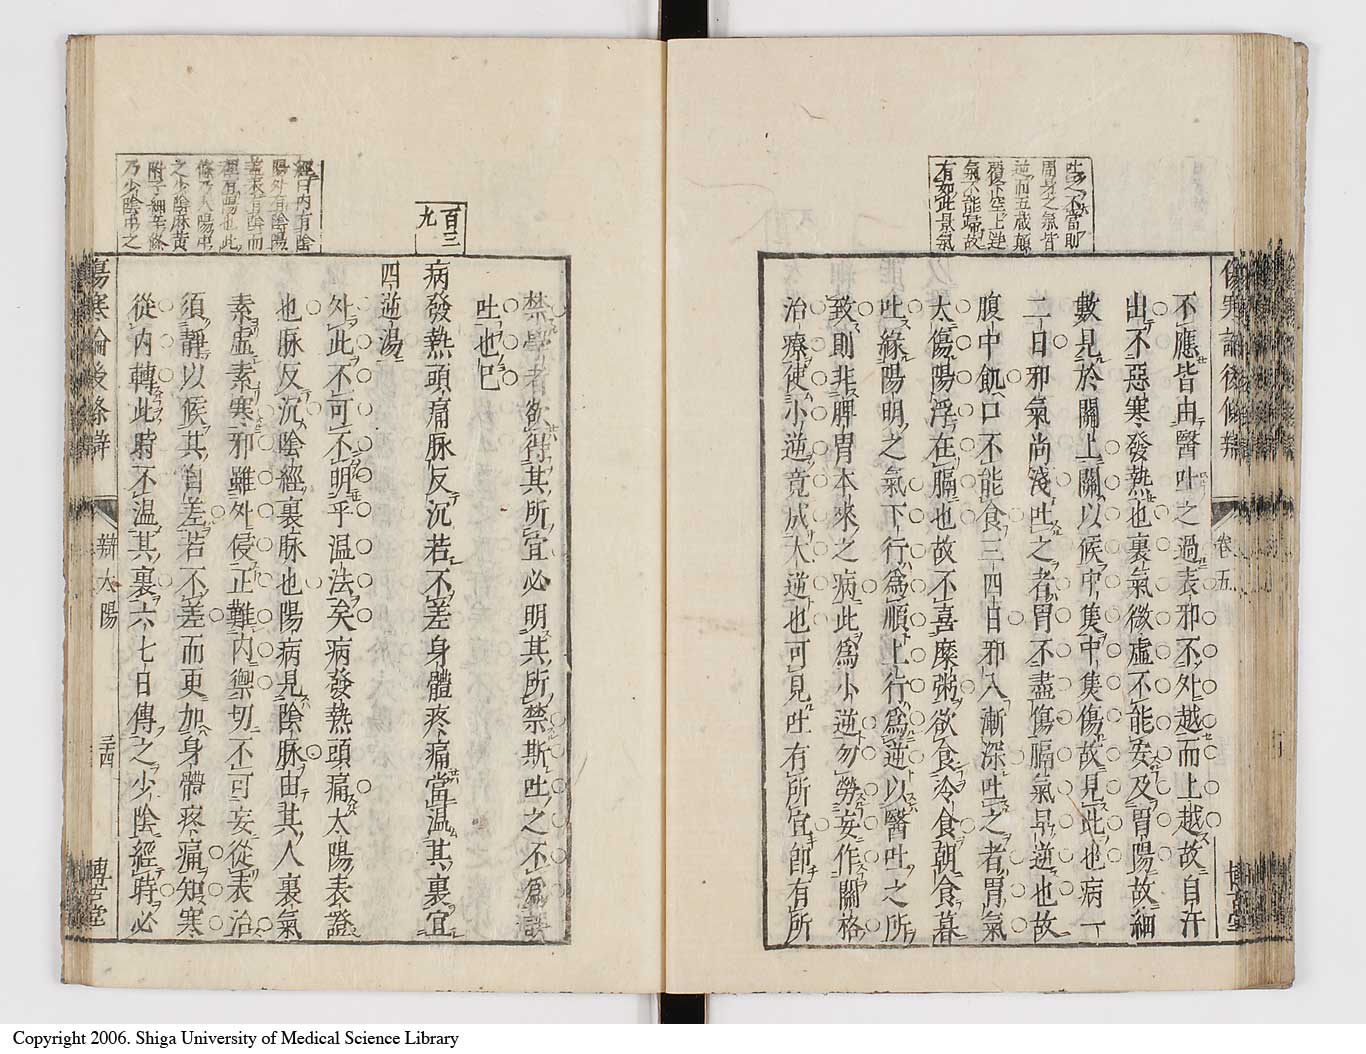 吐之不當則
周身之氣皆
逆而五臓顛
覆下空上逆
氣不能歸故
有如此景氣
傷寒論後條辨
卷五
博古堂
不應皆由醫吐之過表邪不外越而上越故自汗
出不惡寒發熱也裏氣微虛不能安及胃陽故細
數見於關上關以候中隻中隻傷故見此也病一
二日邪氣尚淺吐之者胃不盡傷膈氣早逆也故
腹中飢口不能食三四日邪入漸深吐之者胃氣
大傷陽浮在膈也故不喜糜粥欲食冷食朝食暮
吐緣陽明之氣下行爲順上行爲逆以醫吐之所
致則非脾胃本來之病此爲小逆勿勞妄作關格
治療使小逆竟成大逆也可見吐有所宜即有所
禁學者欲得其所宜必明其所禁斯吐之不爲誤
吐也已
百三九
病發熱頭痛脉反沉若不差身體疼痛當温其裏宜
四逆湯
經曰內有陰
陽外有陰陽
蓋表有陰而
裏有陽也此
條乃太陽中
之少陰麻黄
附子細辛條
乃少陰中之
外此不可不明乎温法矣病發熱頭痛太陽表證
也脉反沉陰經裏脉也陽病見陰脉由其人裏氣
素虛素寒邪雖外侵正難內禦切不可妄從表治
須靜以候其自差若不差而更加身體疼痛知寒
從內轉此時不温其裏六七日傳之少陰經時必
傷寒論後條辨
辨太陽
三十四
博古堂
Copyright 2006. Shiga University of Medical Science Library